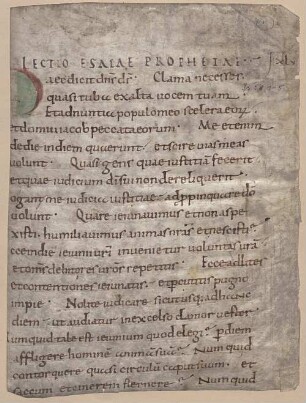 LECTIO ESAIAE PROPHETAE
aec dicit dns ds. Clama ne cesses
quasi tuba exalta vocem tuam.
Et adnuntia populo meo scelera eorum
et domui iacob peccata eorum. Me etenim
de die in diem querunt. et scire vias meas
volunt. Quasi gens quae iustitia fecerit
et quae iudicium di sui non dereliquerit.
ogant me iudicia iustitiae. adppinquare do
volunt. Quare ieiunavimus et non aspe
xisti. humiliavimus animas nras et nescisti
cce in die ieiunii vri invenietur voluntas vra
et oms debitores vros repetitis. Ecce ad lites
et contentiones ieiunatis. et percutitis pugno
impie. Nolite ieiunare sicut usq ad hunc
diem. ut audiatur in excelso clamor vester
umquid tale est ieiunium quod elegi. per diem
affligere homine animā suā. Numquid
contorquere quasi circulū caput suum. et
saccum et cinerem sternere. Numquid